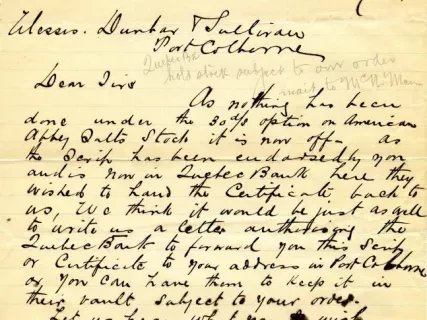 Messrs. Dunbar & Sullivan
Port Colborne
hold stock subject to our order
Dear Sirs
As nothing has been
done under the 30d/s option on American
Salts Stock it is now off. as
the Scrip has been endorsed by you
and is now in Quebec Bank here they
wished to hand the Certificate back to
us, We think it would be just as well
to write us a letter authorizing the
Quebec Bank to forward you this Scrip
or Certificate to your address in Port Colborne
or you can have them to keep it in
their vault subject to your order.
Let us